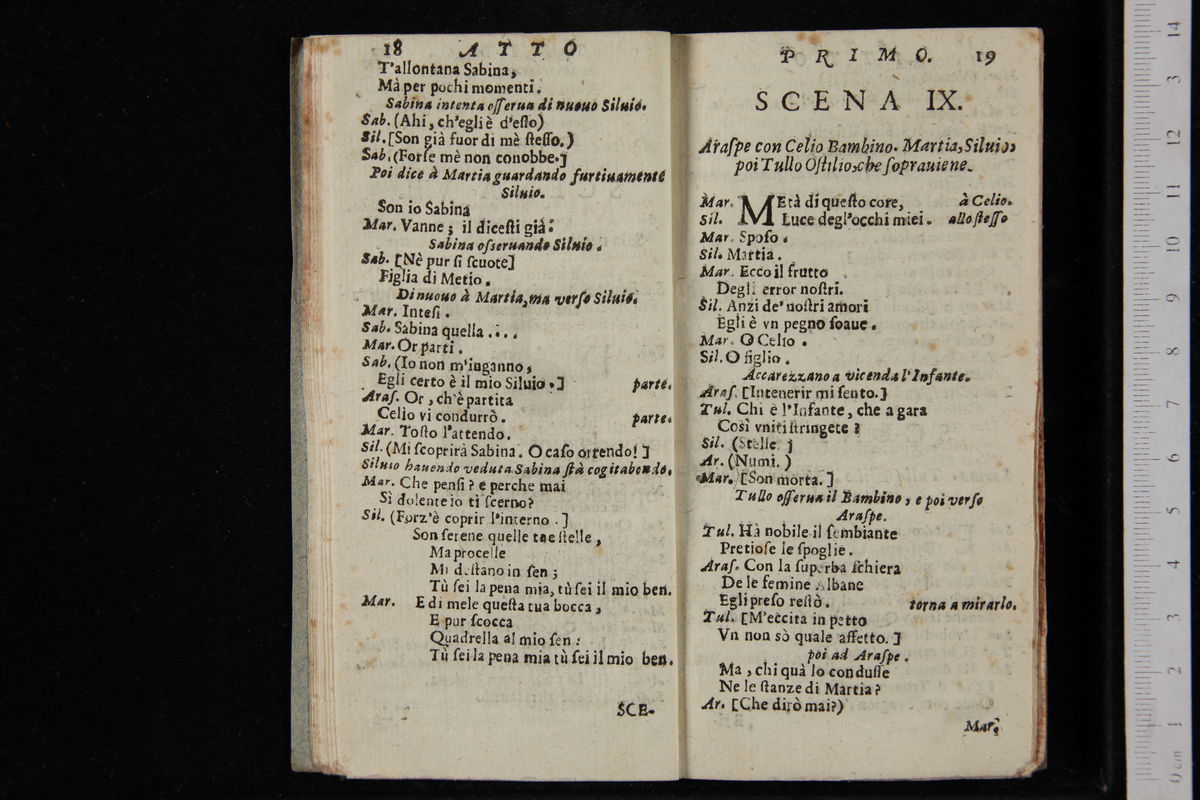 18 ATTO
T'allontana Sabina,
Mà per pochi momenti.
Sabina intenta osserua di nuouo Siluio.
Sab. (Ahi, ch'egli è d'esso)
Sil. [Son già fuor di mè stesso.)
Sab. (Forse mè non conobbe.]
Poi dice à Martia guardando furtiuamente
Siluio.
Son io Sabina
Mar. Vanne; il dicesti già:
Sabina osseruando Siluio.
Sab. [Nè pur si scuote]
Figlia di Metio.
Di nuouo à Martia, ma verso Siluio.
Mar. Intesi.
Sab. Sabina quella ....
Mar. Or parti.
Sab. (Io non m'inganno,
Egli certo è il mio Siluio.] parte.
Aras. Or, ch'è partita
Celio vi condurrò. parte.
Mar. Tosto l'attendo.
Sil. (Mi scoprirà Sabina. O caso orrendo!]
Siluio hauendo veduta Sabina stà cogitabondo.
Mar. Che pensi? e perche mai
Sì dolente io ti scerno?
Sil. (Forz'è coprir l'interno.]
Son serene quelle tue stelle,
Ma procelle
Mi destano in sen;
Tù sei la pena mia, tù sei il mio ben.
Mar. E di mele questa tua bocca,
E pur scocca
Quadrella al mio sen:
Tù sei la pena mia tù sei il mio ben.
SCE-
PRIMO. 19
SCENA IX.
Araspe con Celio Bambino. Martia, Siluio,
poi Tullo Ostilio, che soprauiene.
Mar. MEtà di questo core, à Celio.
Sil. Luce degl'occhi miei. allo stesso
Mar. Sposo.
Sil. Martia.
Mar. Ecco il frutto
Degli error nostri.
Sil. Anzi de' nostri amori
Egli è vn pegno soaue.
Mar. O Celio.
Sil. O figlio.
Accarezzano a vicenda l'Infante.
Aras. [Intenerir mi sento.]
Tul. Chi è l'Infante, che a gara
Così vniti stringete?
Sil. (Stelle.]
Ar. (Numi.)
Mar. [Son morta.]
Tullo osserua il Bambino, e poi verso
Araspe.
Tul. Hà nobile il sembiante
Pretiose le spoglie.
Aras. Con la superba schiera
De le femine Albane
Egli preso restò. torna a mirarlo.
Tul. [M'eccita in petto
Vn non sò quale affetto.]
poi ad Araspe.
Ma, chi quà lo condusse
Ne le stanze di Martia?
Ar. [Che dirò mai?)
Mar.